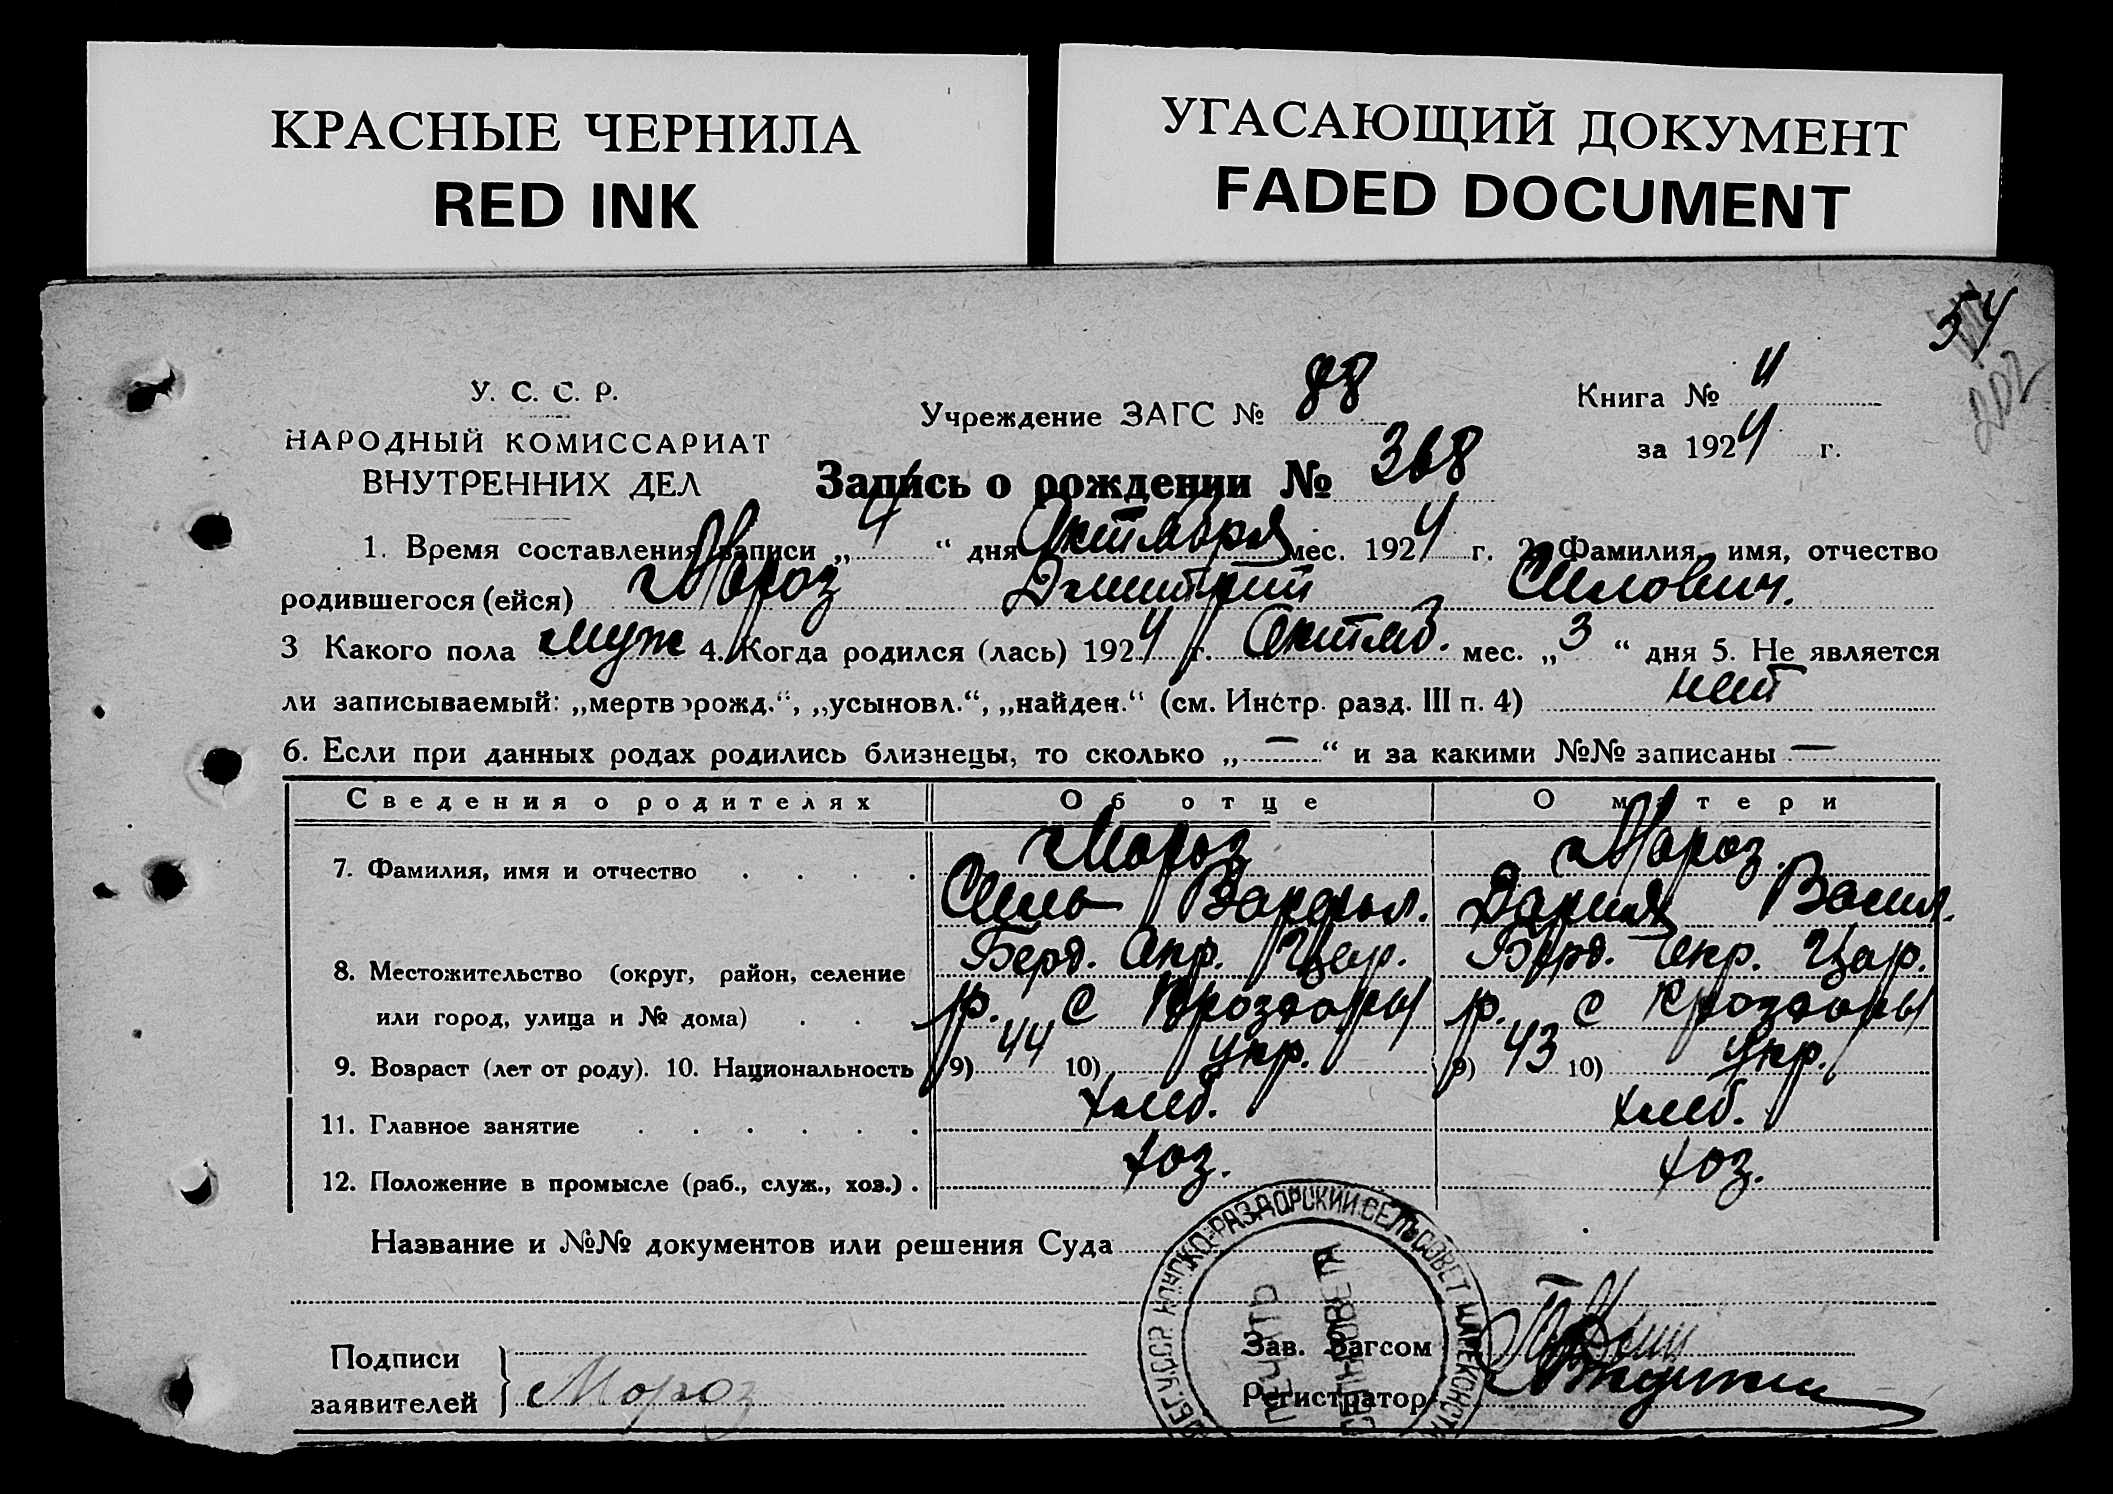 КРАСНЫЕ ЧЕРНИЛА
RED INK
УГАСАЮЩИЙ ДОКУМЕНТ
FADED DOCUMENT
54
202
У. С. С. Р.
НАРОДНЫЙ КОМИССАРИАТ
ВНУТРЕННИХ ДЕЛ
Учреждение ЗАГС № 88
Книга № 4
за 1924 г.
Запись о рождении № 368
1. Время составления записи „ 4 “ дня Октября мес. 1924 г. 2. Фамилия, имя, отчество
родившегося (ейся) Мороз Дмитрий Силович.
3 Какого пола муж 4. Когда родился (лась) 1924 г. Октяб. мес. „ 3 “ дня 5. Не является
ли записываемый: „мертворожд.“, „усыновл.“, „найден.“ (см. Инстр. разд. III п. 4) нет
6. Если при данных родах родились близнецы, то сколько „ — “ и за какими №№ записаны —
Сведения о родителях Об отце О матери
7. Фамилия, имя и отчество Мороз Мороз.
Сила Варфол. Дария Васил.
8. Местожительство (округ, район, селение Берд. Окр. Цар. Берд. Окр. Цар.
или город, улица и № дома) р. с Кроздоры р. с Кроздоры
9. Возраст (лет от роду). 10. Национальность 9) 44 10) Укр. 9) 43 10) Укр.
11. Главное занятие хлеб. хлеб.
12. Положение в промысле (раб., служ., хоз.) хоз. хоз.
Название и №№ документов или решения Суда
РАЗДОРСКИЙ СЕЛЬСОВЕТ ЦАРЕКОНСТ
УССР
Подписи
заявителей } Мороз
Зав. Загсом
Регистратор